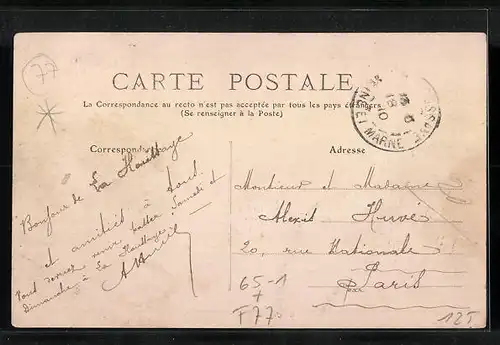 77
CARTE POSTALE
La Correspondance au recto n'est pas acceptée par tous les pays étrangers
(Se renseigner à la Poste)
Correspondance
Adresse
Bonjour de La
et amitiés à tous.
Vous venir Samedi et
Dimanche à La
Monsieur et Madame
Alexis Hervé
20, rue Nationale
Paris
65-1
+
F77
12T
MARNE